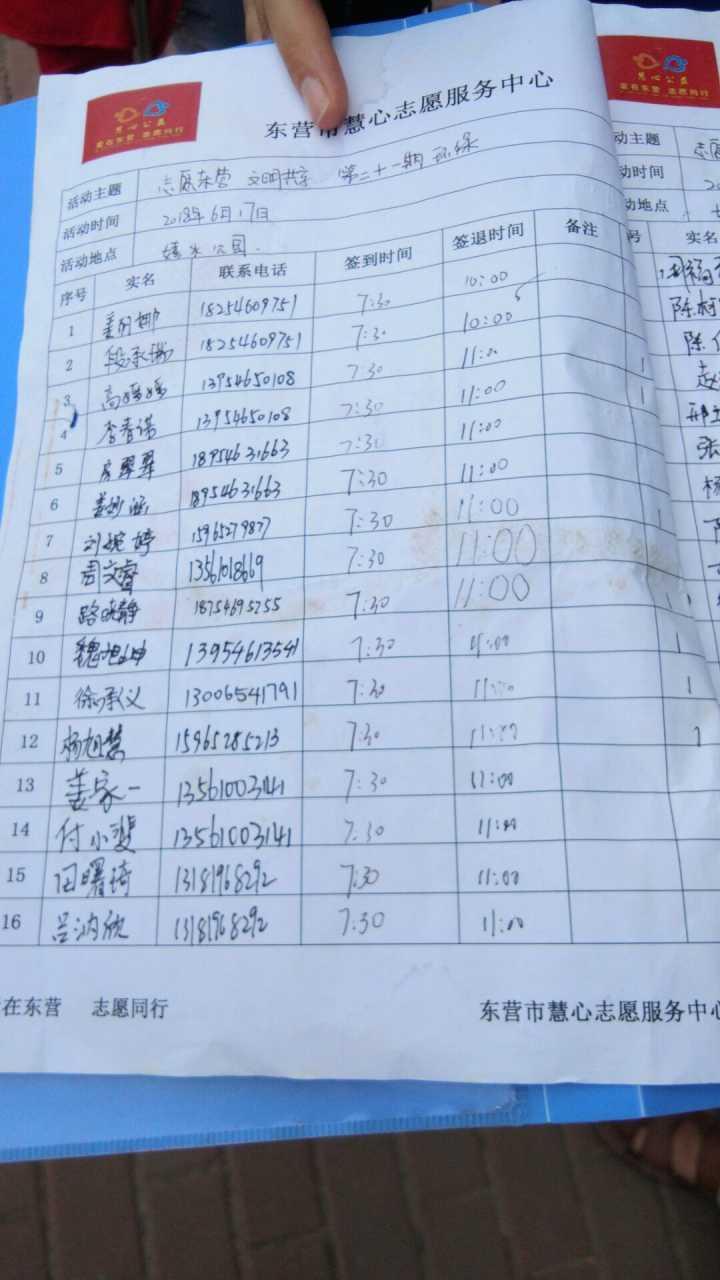 慧心公益
爱在东营 志愿同行
东营市慧心志愿服务中心
活动主题 志愿东营 文明共享 第二十一期环绿
活动时间 2018年6月17日
活动地点 公园
序号 实名 联系电话 签到时间 签退时间 备注
1 18254609751 7:30 10:00
2 段承 18254609751 7:30 10:00
3 高嫣嫣 13954650108 7:30 11:00
4 李春诺 13954650108 7:30 11:00
5 房翠翠 18954631663 7:30 11:00
6 姜妙涵 18954631663 7:30 11:00
7 刘婉婷 15965279827 7:30 11:00
8 周文睿 13561018669 7:30 11:00
9 路晓静 18754695255 7:30 11:00
10 魏旭坤 13954613541 7:30 11:00
11 徐承义 13006541791 7:30 11:00
12 杨旭慧 15965285213 7:30 11:00
13 姜家一 13561003141 7:30 11:00
14 付小斐 13561003141 7:30 11:00
15 田曙琦 13181968292 7:30 11:00
16 吕沩欣 13181968292 7:30 11:00
在东营 志愿同行
东营市慧心志愿服务中心
慧心公益
爱在东营 志愿同行
动主题 志愿
动时间
动地点
号 实名
陈柯
陈
赵
邢
张
杨